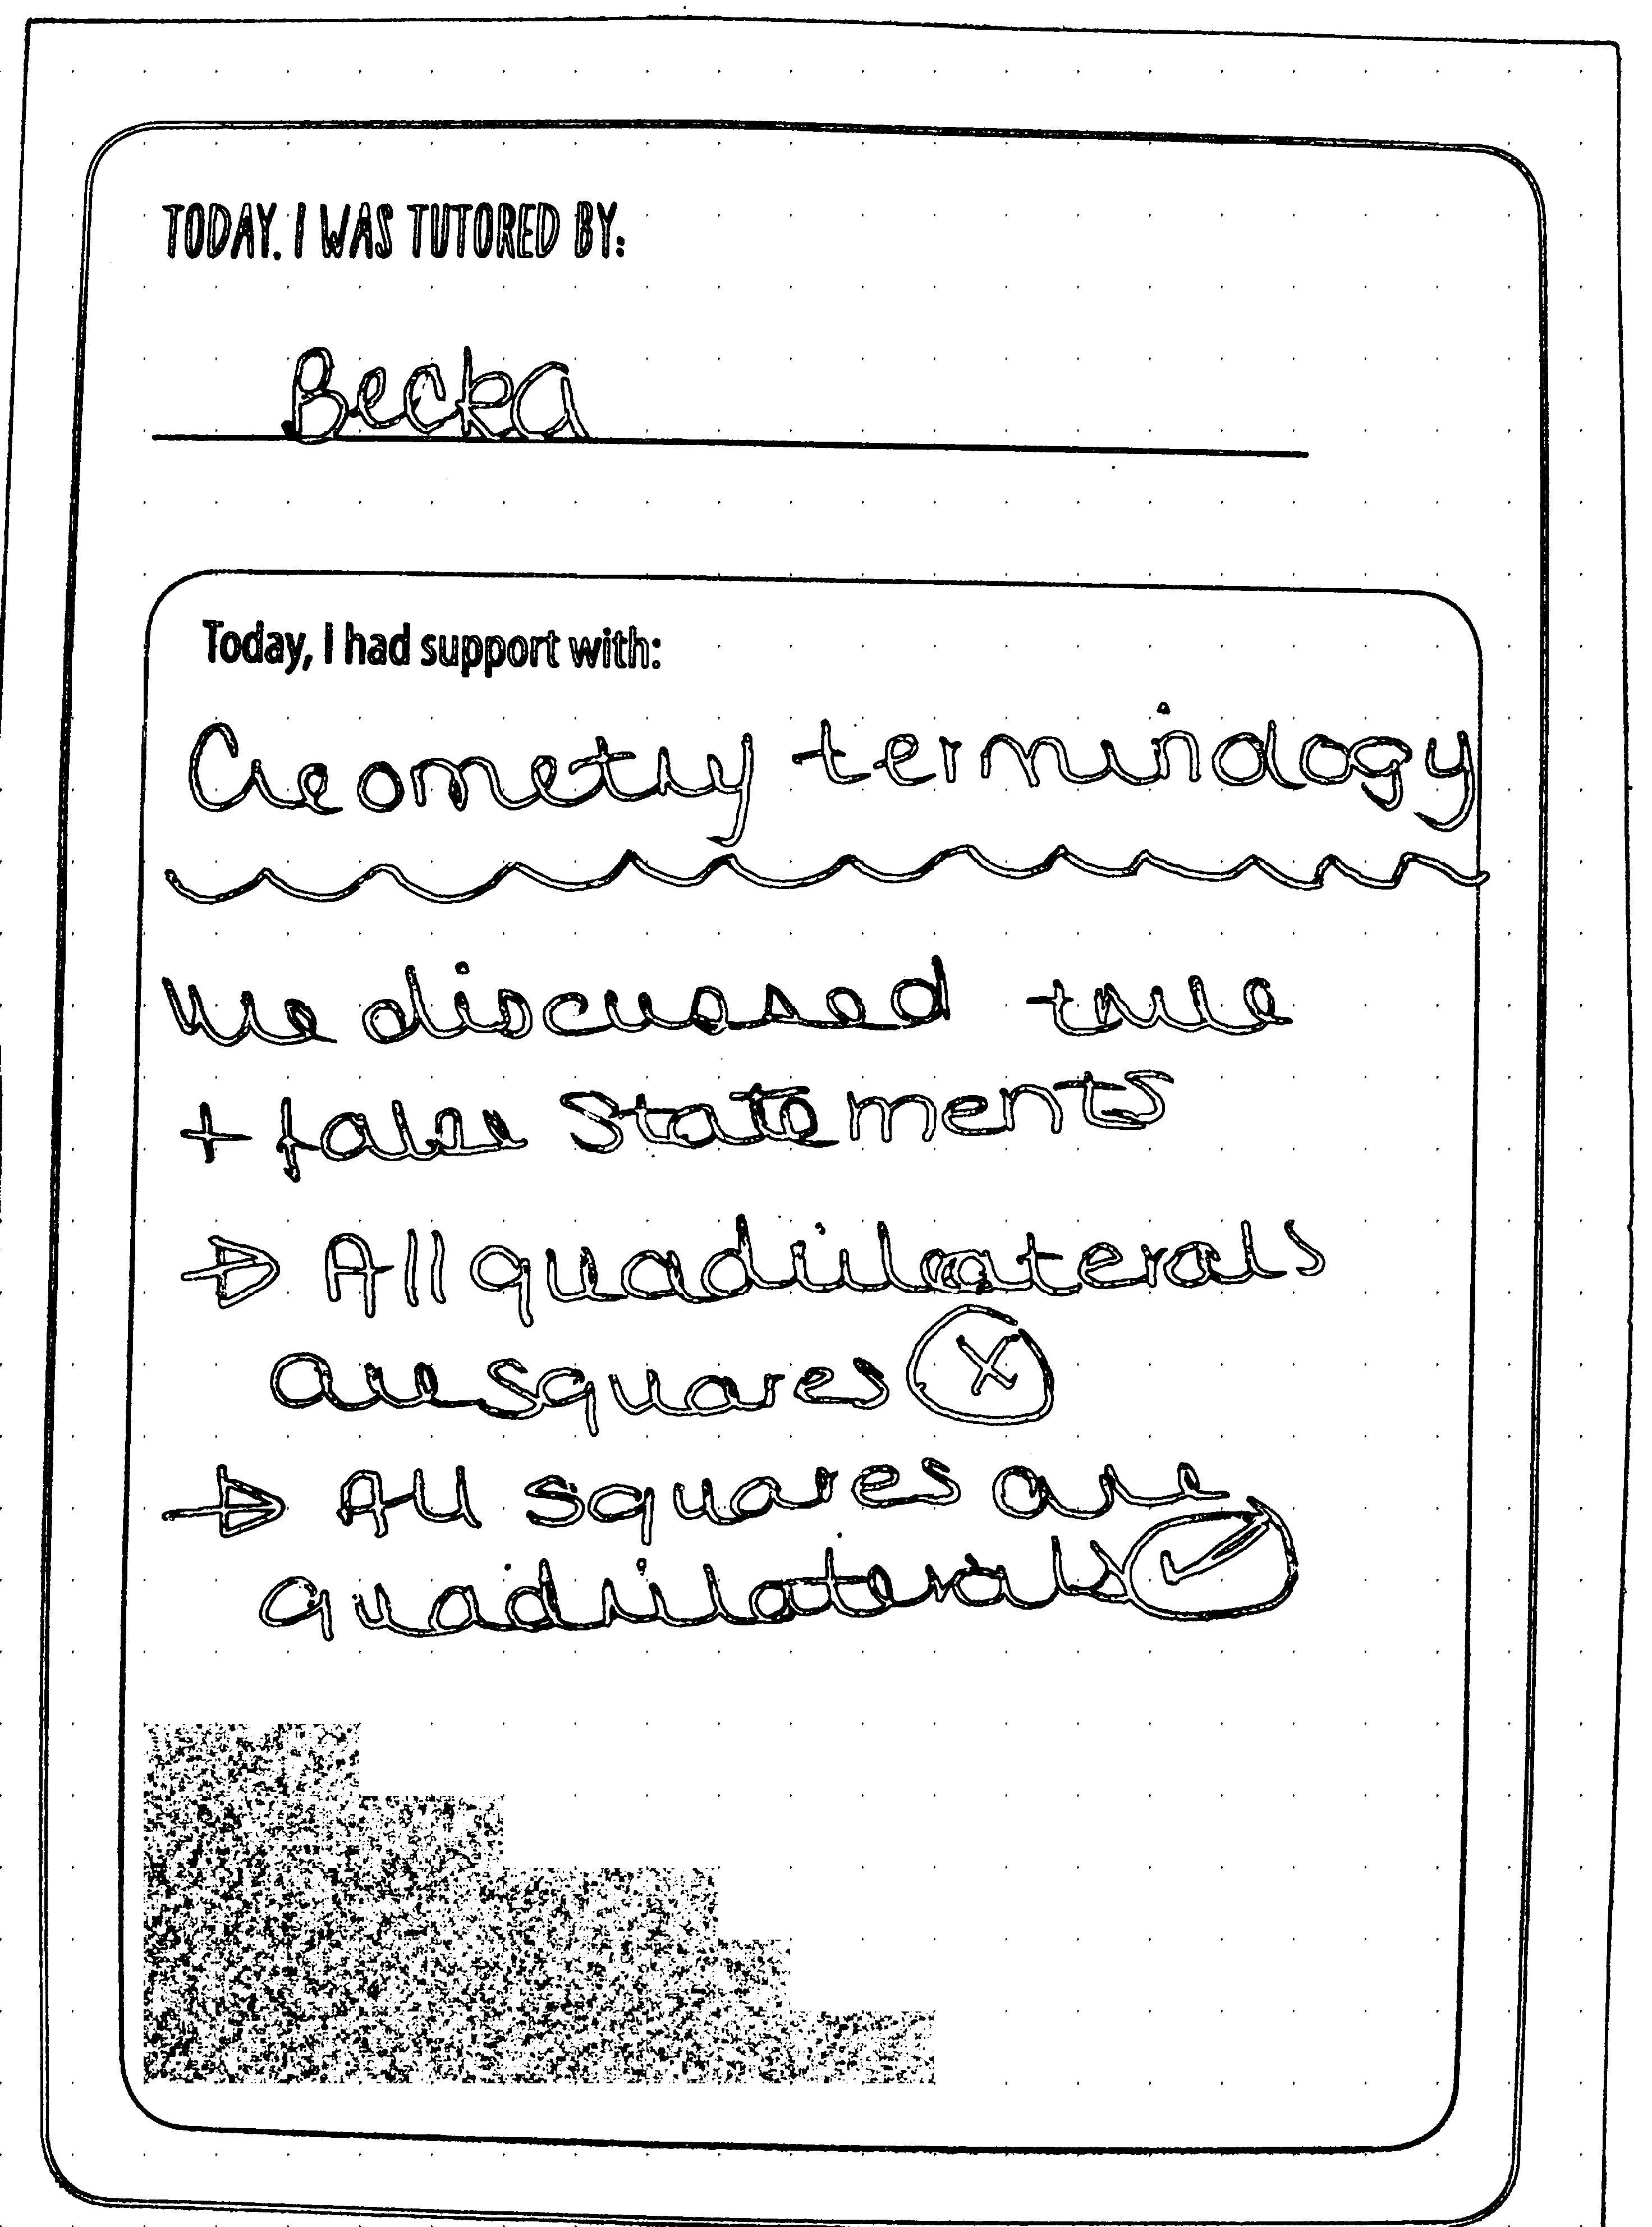 TODAY, I WAS TUTORED BY:
Becka
Today, I had support with:
Geometry terminology
We discussed true
+ false statements
→ All quadrilaterals
are squares ✗
→ All squares are
quadrilaterals ✓